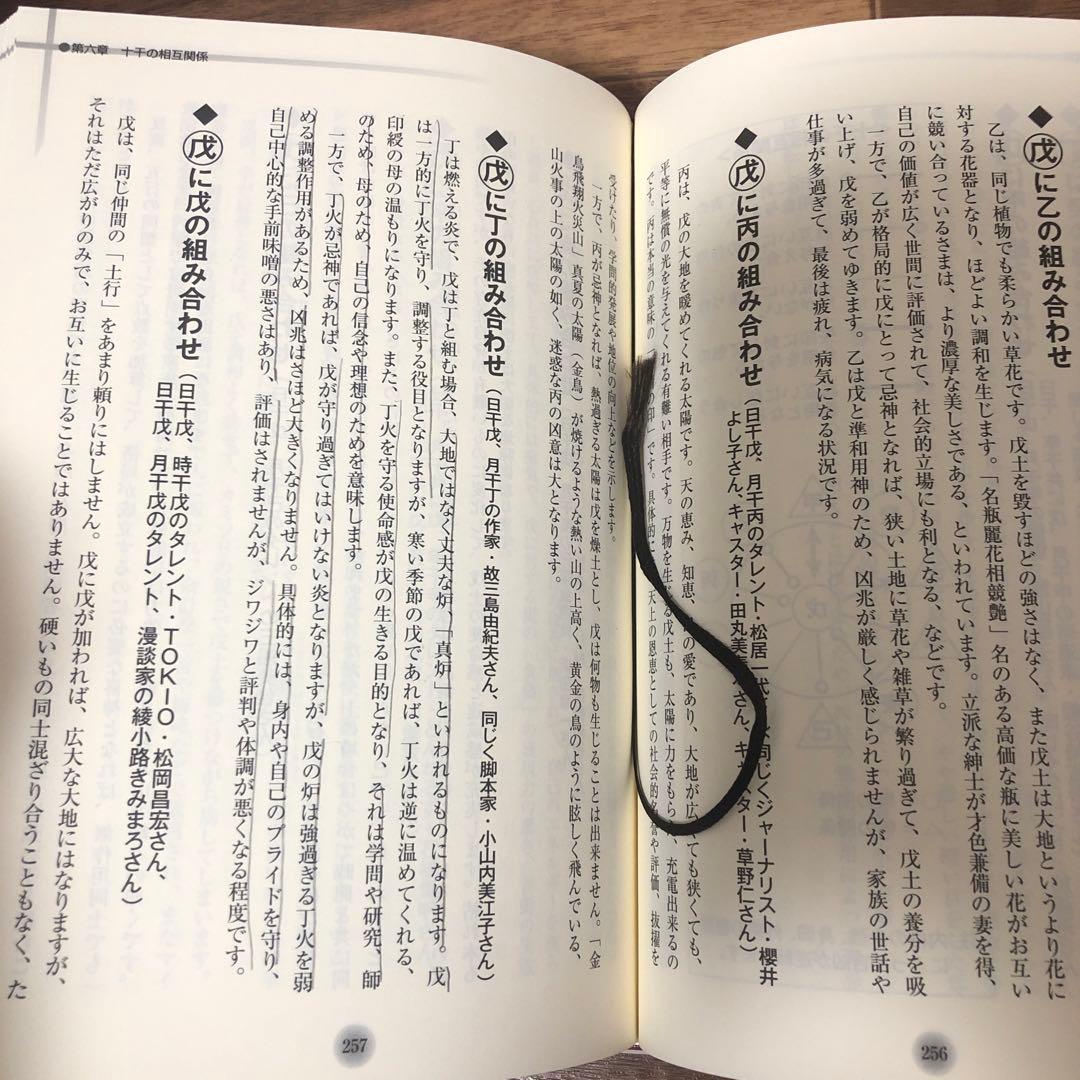 ◆戊に乙の組み合わせ
乙は、同じ植物でも柔らかい草花です。戊土を毀すほどの強さはなく、また戊土は大地というより花に
対する花器となり、ほどよい調和を生じます。「名瓶麗花相競艶」名のある高価な瓶に美しい花がお互い
に競い合っているさまは、より濃厚な美しさである、といわれています。立派な紳士が才色兼備の妻を得、
自己の価値が広く世間に評価されて、社会的立場にも利となる、などです。
一方で、乙が格局的に戊にとって忌神となれば、狭い土地に草花や雑草が繁り過ぎて、戊土の養分を吸
い上げ、戊を弱めてゆきます。乙は戊と準和用神のため、凶兆が厳しく感じられませんが、家族の世話や
仕事が多過ぎて、最後は疲れ、病気になる状況です。
◆戊に丙の組み合わせ（日干戊、月干丙のタレント・松居一代 同じくジャーナリスト・櫻井
よし子さん、キャスター・田丸美 さん、キ スター・草野仁さん）
丙は、戊の大地を暖めてくれる太陽です。天の恵み、知恵、 の愛であり、大地が広 ても狭くても、
平等に無償の光を与えてくれる有難い相手です。万物を生じ 戊土も、太陽に力をもら 、充電出来るの
です。丙は本当の意味の 印」です。具体的に 天上の恩恵としての社会的 や評価、抜擢を
受けたり、学問的発展や地位の向上などを示します。
一方で、丙が忌神となれば、熱過ぎる太陽は戊を燥土とし、戊は何物も生じることは出来ません。「金
鳥飛翔火災山」真夏の太陽（金鳥）が焼けるような熱い山の上高く、黄金の鳥のように眩しく飛んでいる、
山火事の上の太陽の如く、迷惑な丙の凶意は大となります。
256
●第六章　十干の相互関係
◆戊に丁の組み合わせ（日干戊、月干丁の作家・故三島由紀夫さん、同じく脚本家・小山内美江子さん）
丁は燃える炎で、戊は丁と組む場合、大地ではなく丈夫な炉、「真炉」といわれるものになります。戊
は一方的に丁火を守り、調整する役目となりますが、寒い季節の戊であれば、丁火は逆に温めてくれる、
印綬の母の温もりになります。また、丁火を守る使命感が戊の生きる目的となり、それは学問や研究、師
のため、母のため、自己の信念や理想のためを意味します。
一方で、丁火が忌神であれば、戊が守り過ぎてはいけない炎となりますが、戊の炉は強過ぎる丁火を弱
める調整作用があるため、凶兆はさほど大きくなりません。具体的には、身内や自己のプライドを守り、
自己中心的な手前味噌の悪さはあり、評価はされませんが、ジワジワと評判や体調が悪くなる程度です。
◆戊に戊の組み合わせ（日干戊、時干戊のタレント・ＴＯＫＩＯ・松岡昌宏さん、
日干戊、月干戊のタレント、漫談家の綾小路きみまろさん）
戊は、同じ仲間の「土行」をあまり頼りにはしません。戊に戊が加われば、広大な大地にはなりますが、
それはただ広がりのみで、お互いに生じることではありません。硬いもの同士混ざり合うこともなく、た
257